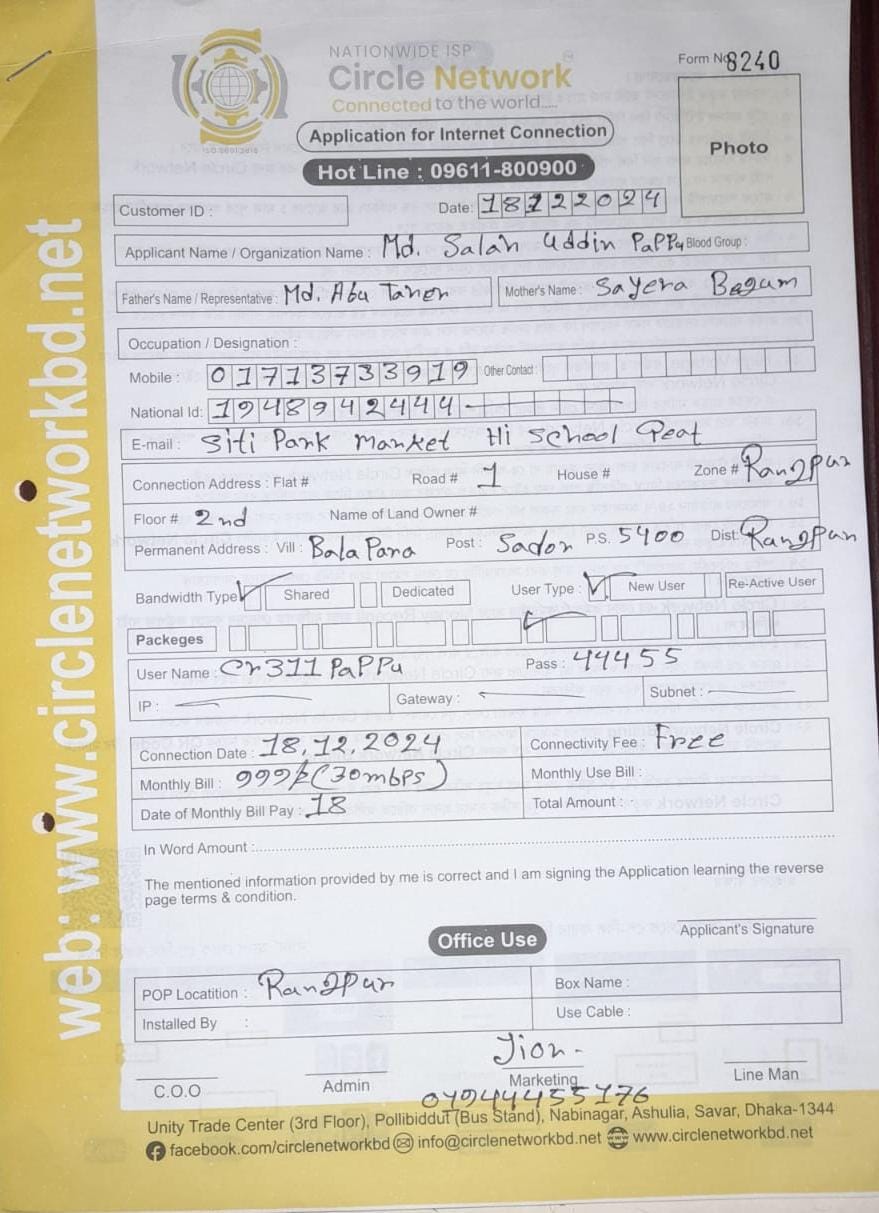 NATIONWIDE ISP
Circle Network
Connected to the world.....
ISO 9001:2015
Form No 8240
Application for Internet Connection
Photo
Hot Line : 09611-800900
Customer ID :
Date: 18122024
Applicant Name / Organization Name : Md. Salah Uddin PaPPu Blood Group :
Father's Name / Representative : Md. Abu Taher Mother's Name : Sayera Begum
Occupation / Designation :
Mobile : 01713733919 Other Contact :
National Id: 1948942444-
E-mail : Siti Park market Hi School Geat
Connection Address : Flat # Road # 1 House # Zone # Rangpur
Floor # 2nd Name of Land Owner #
Permanent Address : Vill : Bala Para Post : Sador P.S. 5400 Dist: Rangpur
Bandwidth Type Shared Dedicated User Type : New User Re-Active User
Packeges
User Name : Cr311 PaPPu Pass : 44455
IP : Gateway : Subnet :
Connection Date : 18.12.2024 Connectivity Fee : Free
Monthly Bill : 999/- (30mbps) Monthly Use Bill :
Date of Monthly Bill Pay : 18 Total Amount :
In Word Amount :
The mentioned information provided by me is correct and I am signing the Application learning the reverse
page terms & condition.
Applicant's Signature
Office Use
POP Locatition : Rangpur Box Name :
Installed By : Use Cable :
Jion-
C.O.O Admin Marketing Line Man
01944455176
Unity Trade Center (3rd Floor), Pollibiddut (Bus Stand), Nabinagar, Ashulia, Savar, Dhaka-1344
facebook.com/circlenetworkbd info@circlenetworkbd.net www.circlenetworkbd.net
web: www.circlenetworkbd.net